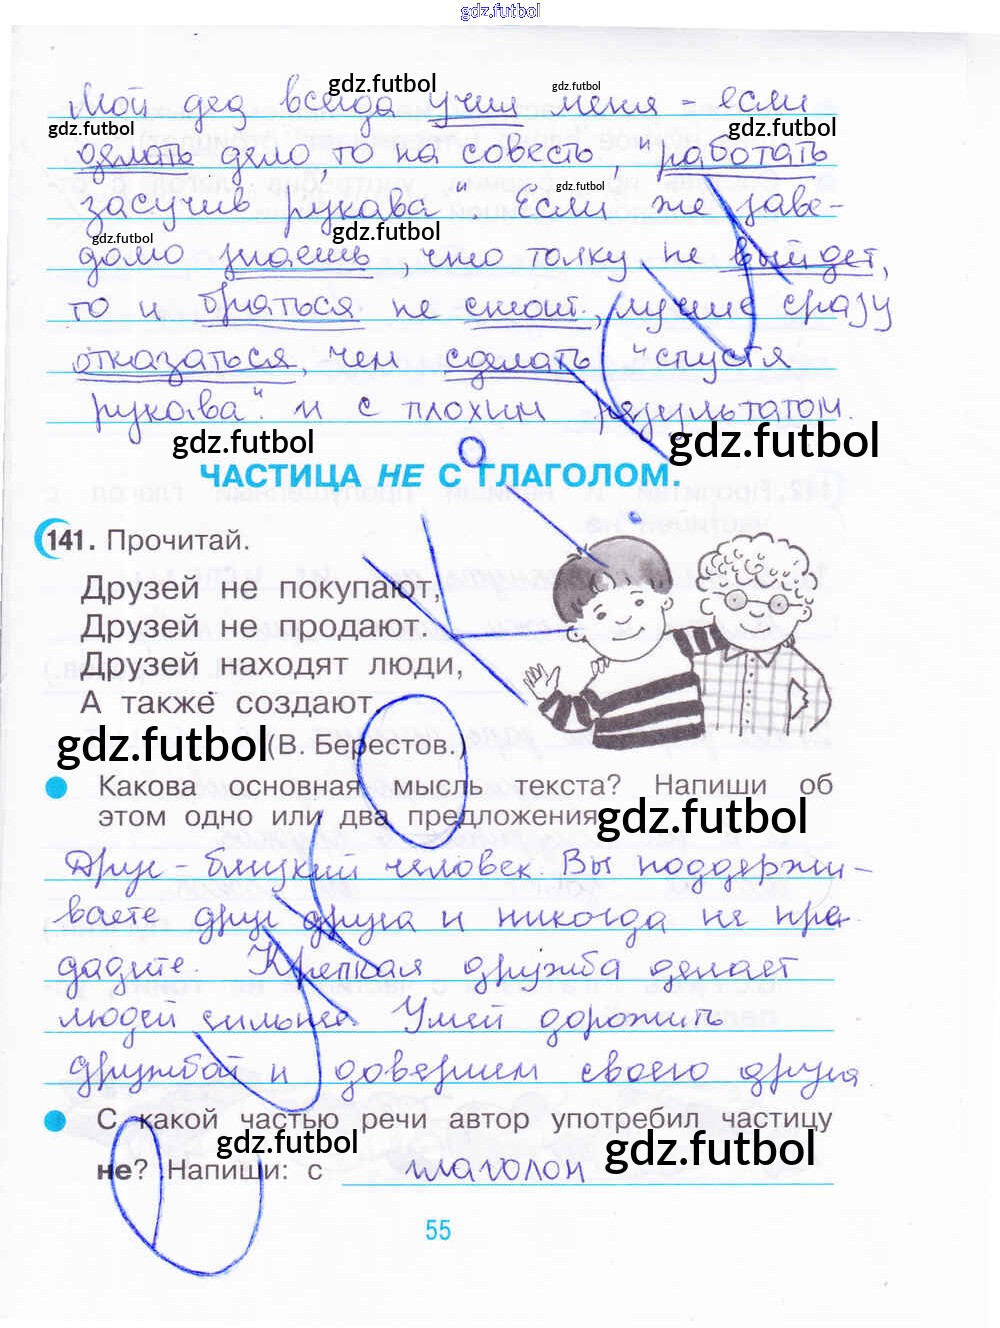 gdz.futbol
Мой дед всегда учил меня - если
gdz.futbol
gdz.futbol
gdz.futbol
gdz.futbol
делать дело, то на совесть, "работать
засучив рукава". Если же заве-
gdz.futbol
gdz.futbol
gdz.futbol
домо знаешь, что толку не выйдет,
то и браться не стоит, лучше сразу
отказаться, чем сделать "спустя
рукава" и с плохим результатом.
gdz.futbol
gdz.futbol
ЧАСТИЦА НЕ С ГЛАГОЛОМ.
141. Прочитай.
Друзей не покупают,
Друзей не продают.
Друзей находят люди,
А также создают.
gdz.futbol
(В. Берестов.)
Какова основная мысль текста? Напиши об
этом одно или два предложения.
gdz.futbol
Друг - близкий человек. Вы поддержи-
ваете друг друга и никогда не пре-
дадите. Крепкая дружба делает
людей сильнее. Умей дорожить
дружбой и доверием своего друга.
С какой частью речи автор употребил частицу
не? Напиши: с глаголом
gdz.futbol
gdz.futbol
55